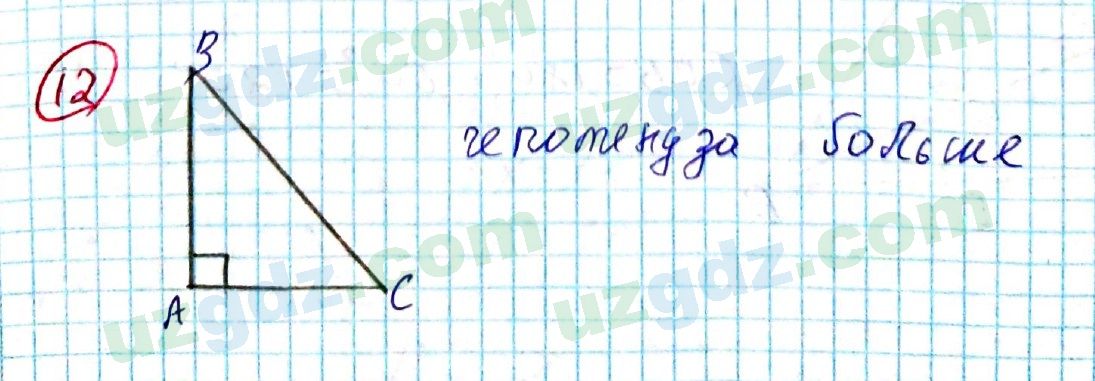 12
B
гепотенуза больше
A
C
uzgdz.com
uzgdz.com
uzgdz.com
uzgdz.com